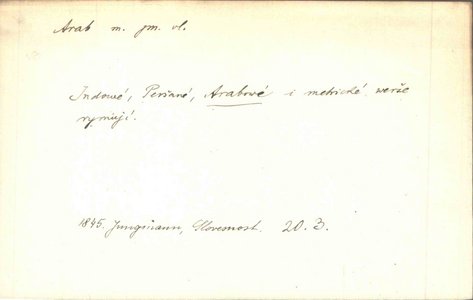 Arab m. jm. vl.
Indowé, Peršané, Arabowé i metrické werše
rýmují.
1845. Jungmann, Slovesnost. 20. 3.